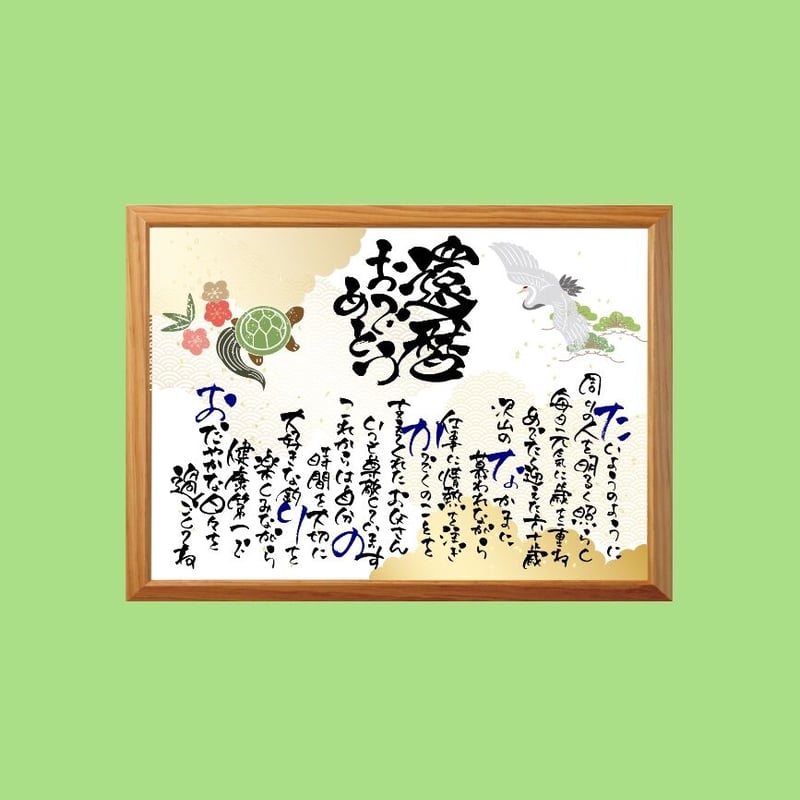 還暦
おめでとう
たいようのように
周りの人を明るく照らし
毎日元気に歳を重ね
めでたく迎えた六十歳
沢山のなかまに
慕われながら
仕事に情熱を注ぎ
かぞくのことを
支えてくれたお父さん
いつも尊敬しています
これからは自分の
時間を大切に
大好きな釣りを
楽しみながら
健康第一で
おだやかな日々を
過ごしてね